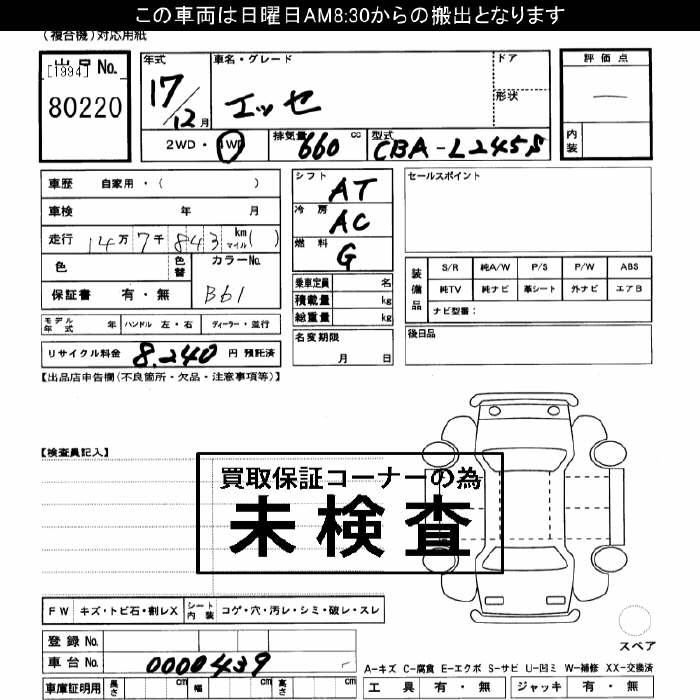 この車両は日曜日AM8:30からの搬出となります
(複合機)対応用紙
出品 No.
[1994]
80220
年式 17/12月
車名・グレード エッセ
ドア
形状
評価点 —
内装
2WD・4WD
排気量 660 cc
型式 CBA-L245S
車歴 自家用・( )
車検 年 月
走行 14万7千843 km マイル( )
色 色替 カラーNo. B61
保証書 有・無
シフト AT
冷房 AC
燃料 G
乗車定員 名
積載量 kg
総重量 kg
セールスポイント
装備品 S/R 純A/W P/S P/W ABS
純TV 純ナビ 革シート 外ナビ エアB
ナビ型番:
モデル年式 年 ハンドル 左・右 ディーラー・並行
名変期限 月 日
後日品
リサイクル料金 8,240 円 預託済
【出品店申告欄(不良箇所・欠品・注意事項等)】
【検査員記入】
買取保証コーナーの為
未検査
FW キズ・トビ石・割レX シート内装 コゲ・穴・汚レ・シミ・破レ・スレ
登録No.
車台No. 0000439
スペア
A-キズ C-腐食 E-エクボ S-サビ U-凹ミ W-補修 XX-交換済
車庫証明用 長さ cm 幅 cm 高さ cm
工具 有・無 ジャッキ 有・無